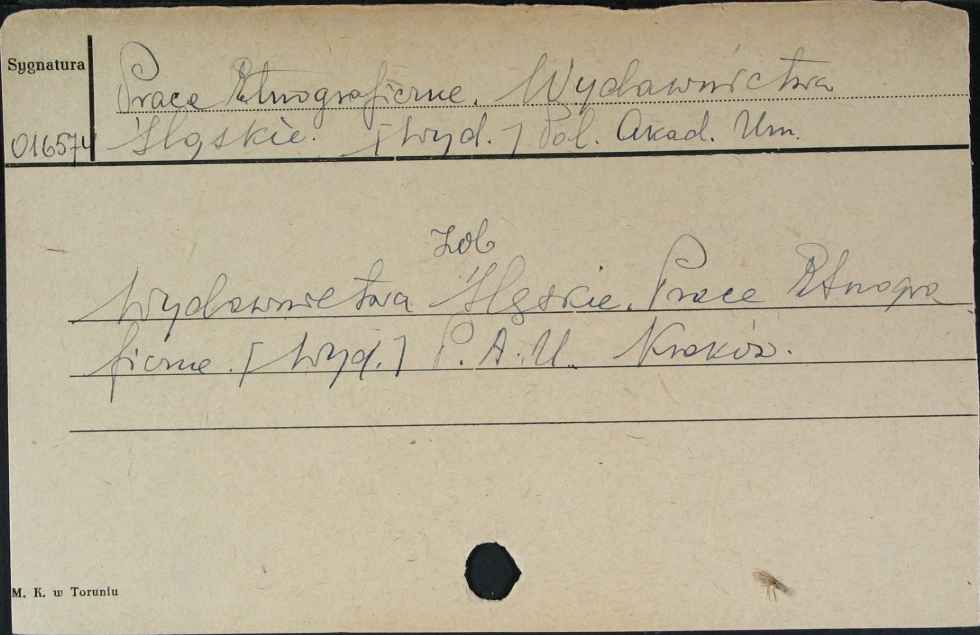 Sygnatura
Prace Etnograficzne. Wydawnictwa
016574 Śląskie. [Wyd.] Pol. Akad. Um.
Zob
Wydawnictwa Śląskie. Prace Etnogra
ficzne. [Wyd.] P. A. U. Kraków.
M. K. w Toruniu